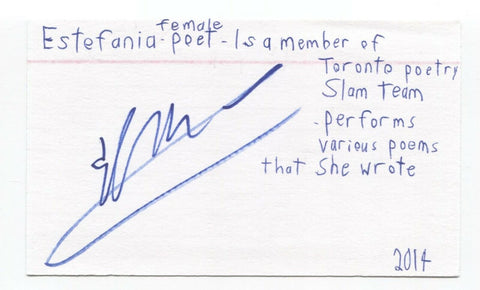 female
Estefania - poet - Is a member of
Toronto poetry
Slam Team
- performs
various poems
that She wrote
2014